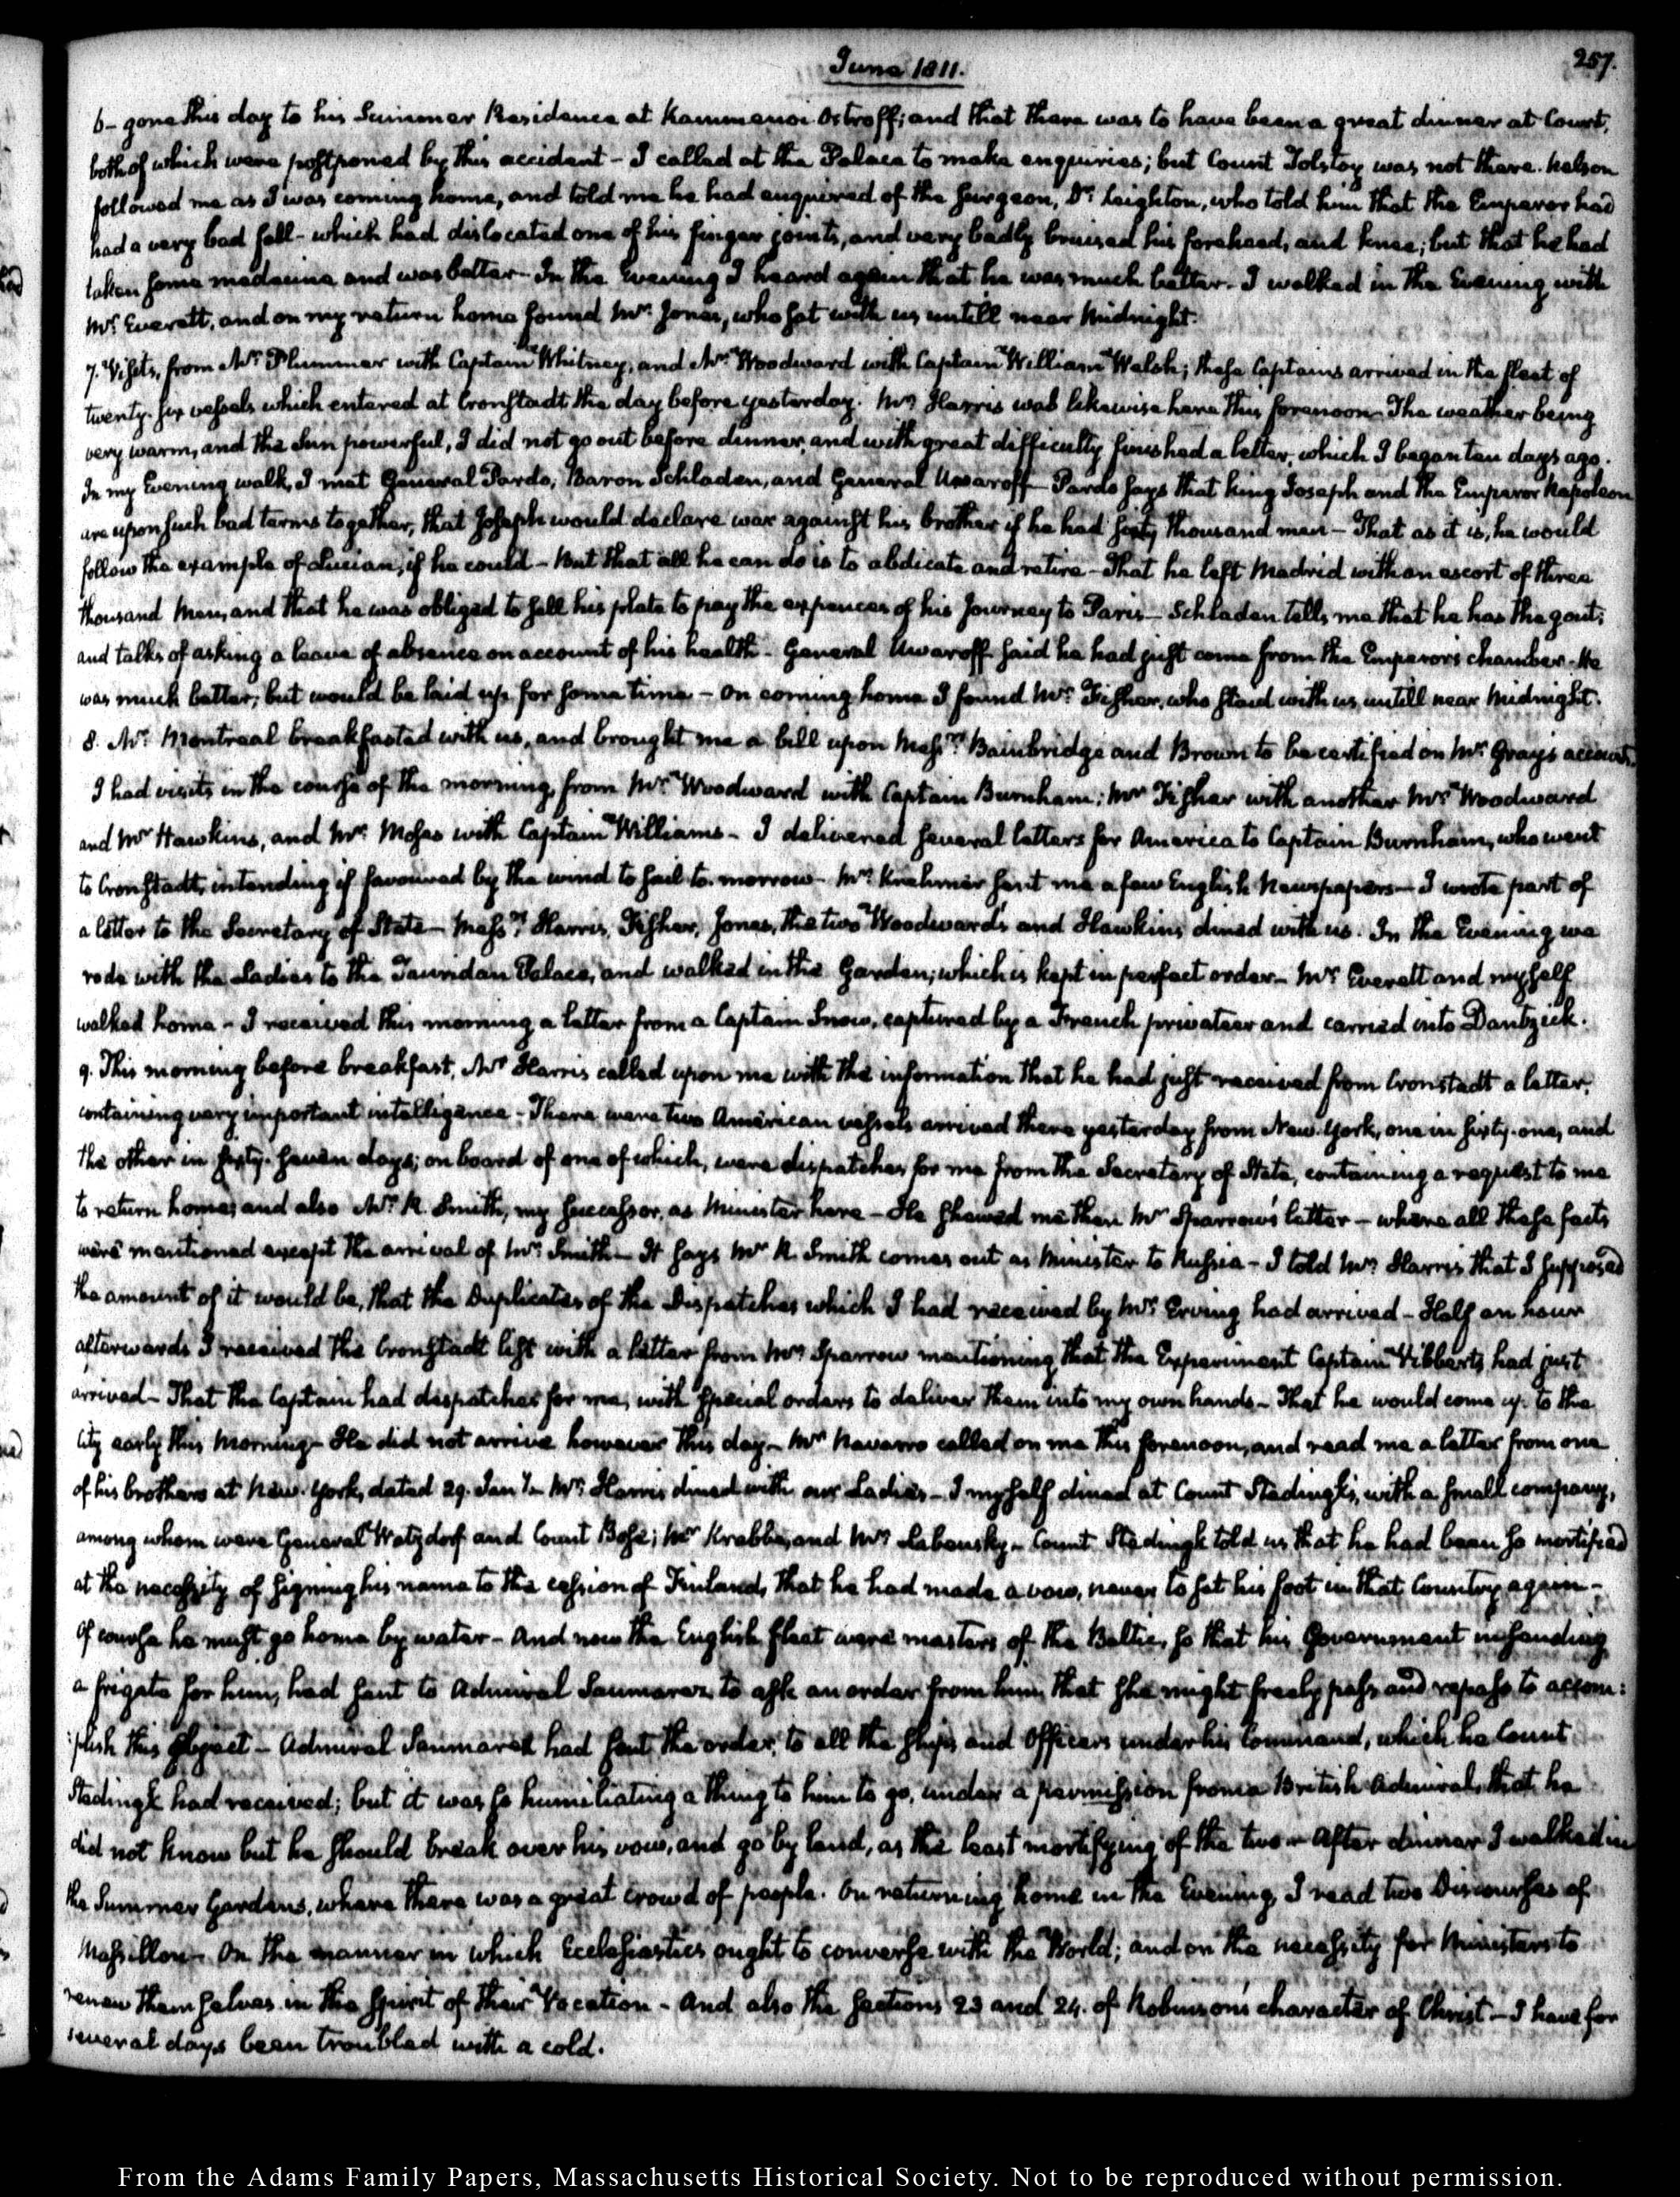 June 1811.
257.
6- gone this day to his Summer Residence at Kammenoi Ostroff; and that there was to have been a great dinner at Court,
both of which were postponed by this accident - I called at the Palace to make enquiries; but Count Tolstoy was not there. Nelson
followed me as I was coming home, and told me he had enquired of the Surgeon, Dr. Leighton, who told him that the Emperor had
had a very bad fall - which had dislocated one of his finger joints, and very badly bruised his forehead, and knee; but that he had
taken some medicine and was better - In the Evening I heard again that he was much better - I walked in the Evening with
Mr. Everett, and on my return home found Mr. Jones, who sat with us untill near Midnight.
7. Visits, from Mr. Plummer with Captain Whitney, and Mr. Woodward with Captain William Welsh; these Captains arrived in the fleet of
twenty-six vessels which entered at Cronstadt the day before yesterday. Mr. Harris was likewise here this forenoon - The weather being
very warm, and the Sun powerful, I did not go out before dinner, and with great difficulty finished a letter, which I began ten days ago.
In my Evening walk, I met General Pardo, Baron Schladen, and General Uwaroff - Pardo says that king Joseph and the Emperor Napoleon
are upon such bad terms together, that Joseph would declare war against his brother if he had sixty thousand men - That as it is, he would
follow the example of Lucian, if he could - But that all he can do is to abdicate and retire - That he left Madrid with an escort of three
thousand Men, and that he was obliged to sell his plate to pay the expences of his Journey to Paris - Schladen tells me that he has the gout;
and talks of asking a leave of absence on account of his health - General Uwaroff said he had just come from the Emperor's chamber - He
was much better; but would be laid up for some time - On coming home I found Mr. Fisher, who staid with us untill near Midnight.
8. Mr. Montreal breakfasted with us, and brought me a bill upon Messrs. Bainbridge and Brown to be certified on Mr. Gray's account.
I had visits in the course of the morning, from Mr. Woodward with Captain Burnham; Mr Fisher with another Mr. Woodward
and Mr Hawkins, and Mr. Moses with Captain Williams - I delivered several letters for America to Captain Burnham, who went
to Cronstadt, intending if favoured by the wind to sail to-morrow - Mr. Krehmer sent me a few English Newspapers - I wrote part of
a letter to the Secretary of State - Messrs. Harris, Fisher, Jones, the two Woodwards and Hawkins dined with us. In the Evening we
rode with the Ladies to the Tauridan Palace, and walked in the Garden; which is kept in perfect order - Mr. Everett and myself
walked home - I received this morning a letter from a Captain Snow, captured by a French privateer and carried into Dantzick.
9. This morning before breakfast, Mr Harris called upon me with the information that he had just received from Cronstadt a letter,
containing very important intelligence - There were two American vessels arrived there yesterday from New-York, one in sixty-one, and
the other in sixty-seven days; on board of one of which, were dispatches for me from the Secretary of State, containing a request to me
to return home; and also Mr. R. Smith, my Successor, as Minister here - He shewed me then Mr Sparrow's letter - where all these facts
were mentioned except the arrival of Mr. Smith - It says Mr R. Smith comes out as Minister to Russia - I told Mr. Harris that I supposed
the amount of it would be, that the Duplicates of the Dispatches which I had received by Mr. Erving had arrived - Half an hour
afterwards I received the Cronstadt list with a letter from Mr. Sparrow mentioning that the Experiment Captain Vibberts, had just
arrived - That the Captain had despatches for me, with special orders to deliver them into my own hands - That he would come up to the
City early this Morning - He did not arrive however this day - Mr Navarro called on me this forenoon, and read me a letter from one
of his brothers at New-York, dated 29. Jany. - Mr. Harris dined with our Ladies - I myself dined at Count Stedingk's, with a small company,
among whom were General Watzdorf and Count Bose; Mr Krabbe, and Mr. Labensky - Count Stedingk told us that he had been so mortified
at the necessity of signing his name to the cession of Finland, that he had made a vow, never to set his foot in that Country again -
Of course he must go home by water - And now the English fleet were masters of the Baltic, so that his Government in sending
a frigate for him, had sent to Admiral Saumarez, to ask an order from him, that she might freely pass and repass to accom:
:plish this object - Admiral Saumarez had sent the order, to all the ships and Officers under his Command, which he Count
Stedingk had received; but it was so humiliating a thing to him to go, under a permission from a British Admiral, that he
did not know but he should break over his vow, and go by land, as the least mortifying of the two - After dinner I walked in
the Summer Gardens, where there was a great crowd of people. On returning home in the Evening, I read two Discourses of
Massillon - On the manner in which Ecclesiastics ought to converse with the World; and on the necessity for Ministers to
renew themselves in the spirit of their Vocation - And also the sections 23 and 24. of Robinson's character of Christ - I have for
several days been troubled with a cold.
From the Adams Family Papers, Massachusetts Historical Society. Not to be reproduced without permission.